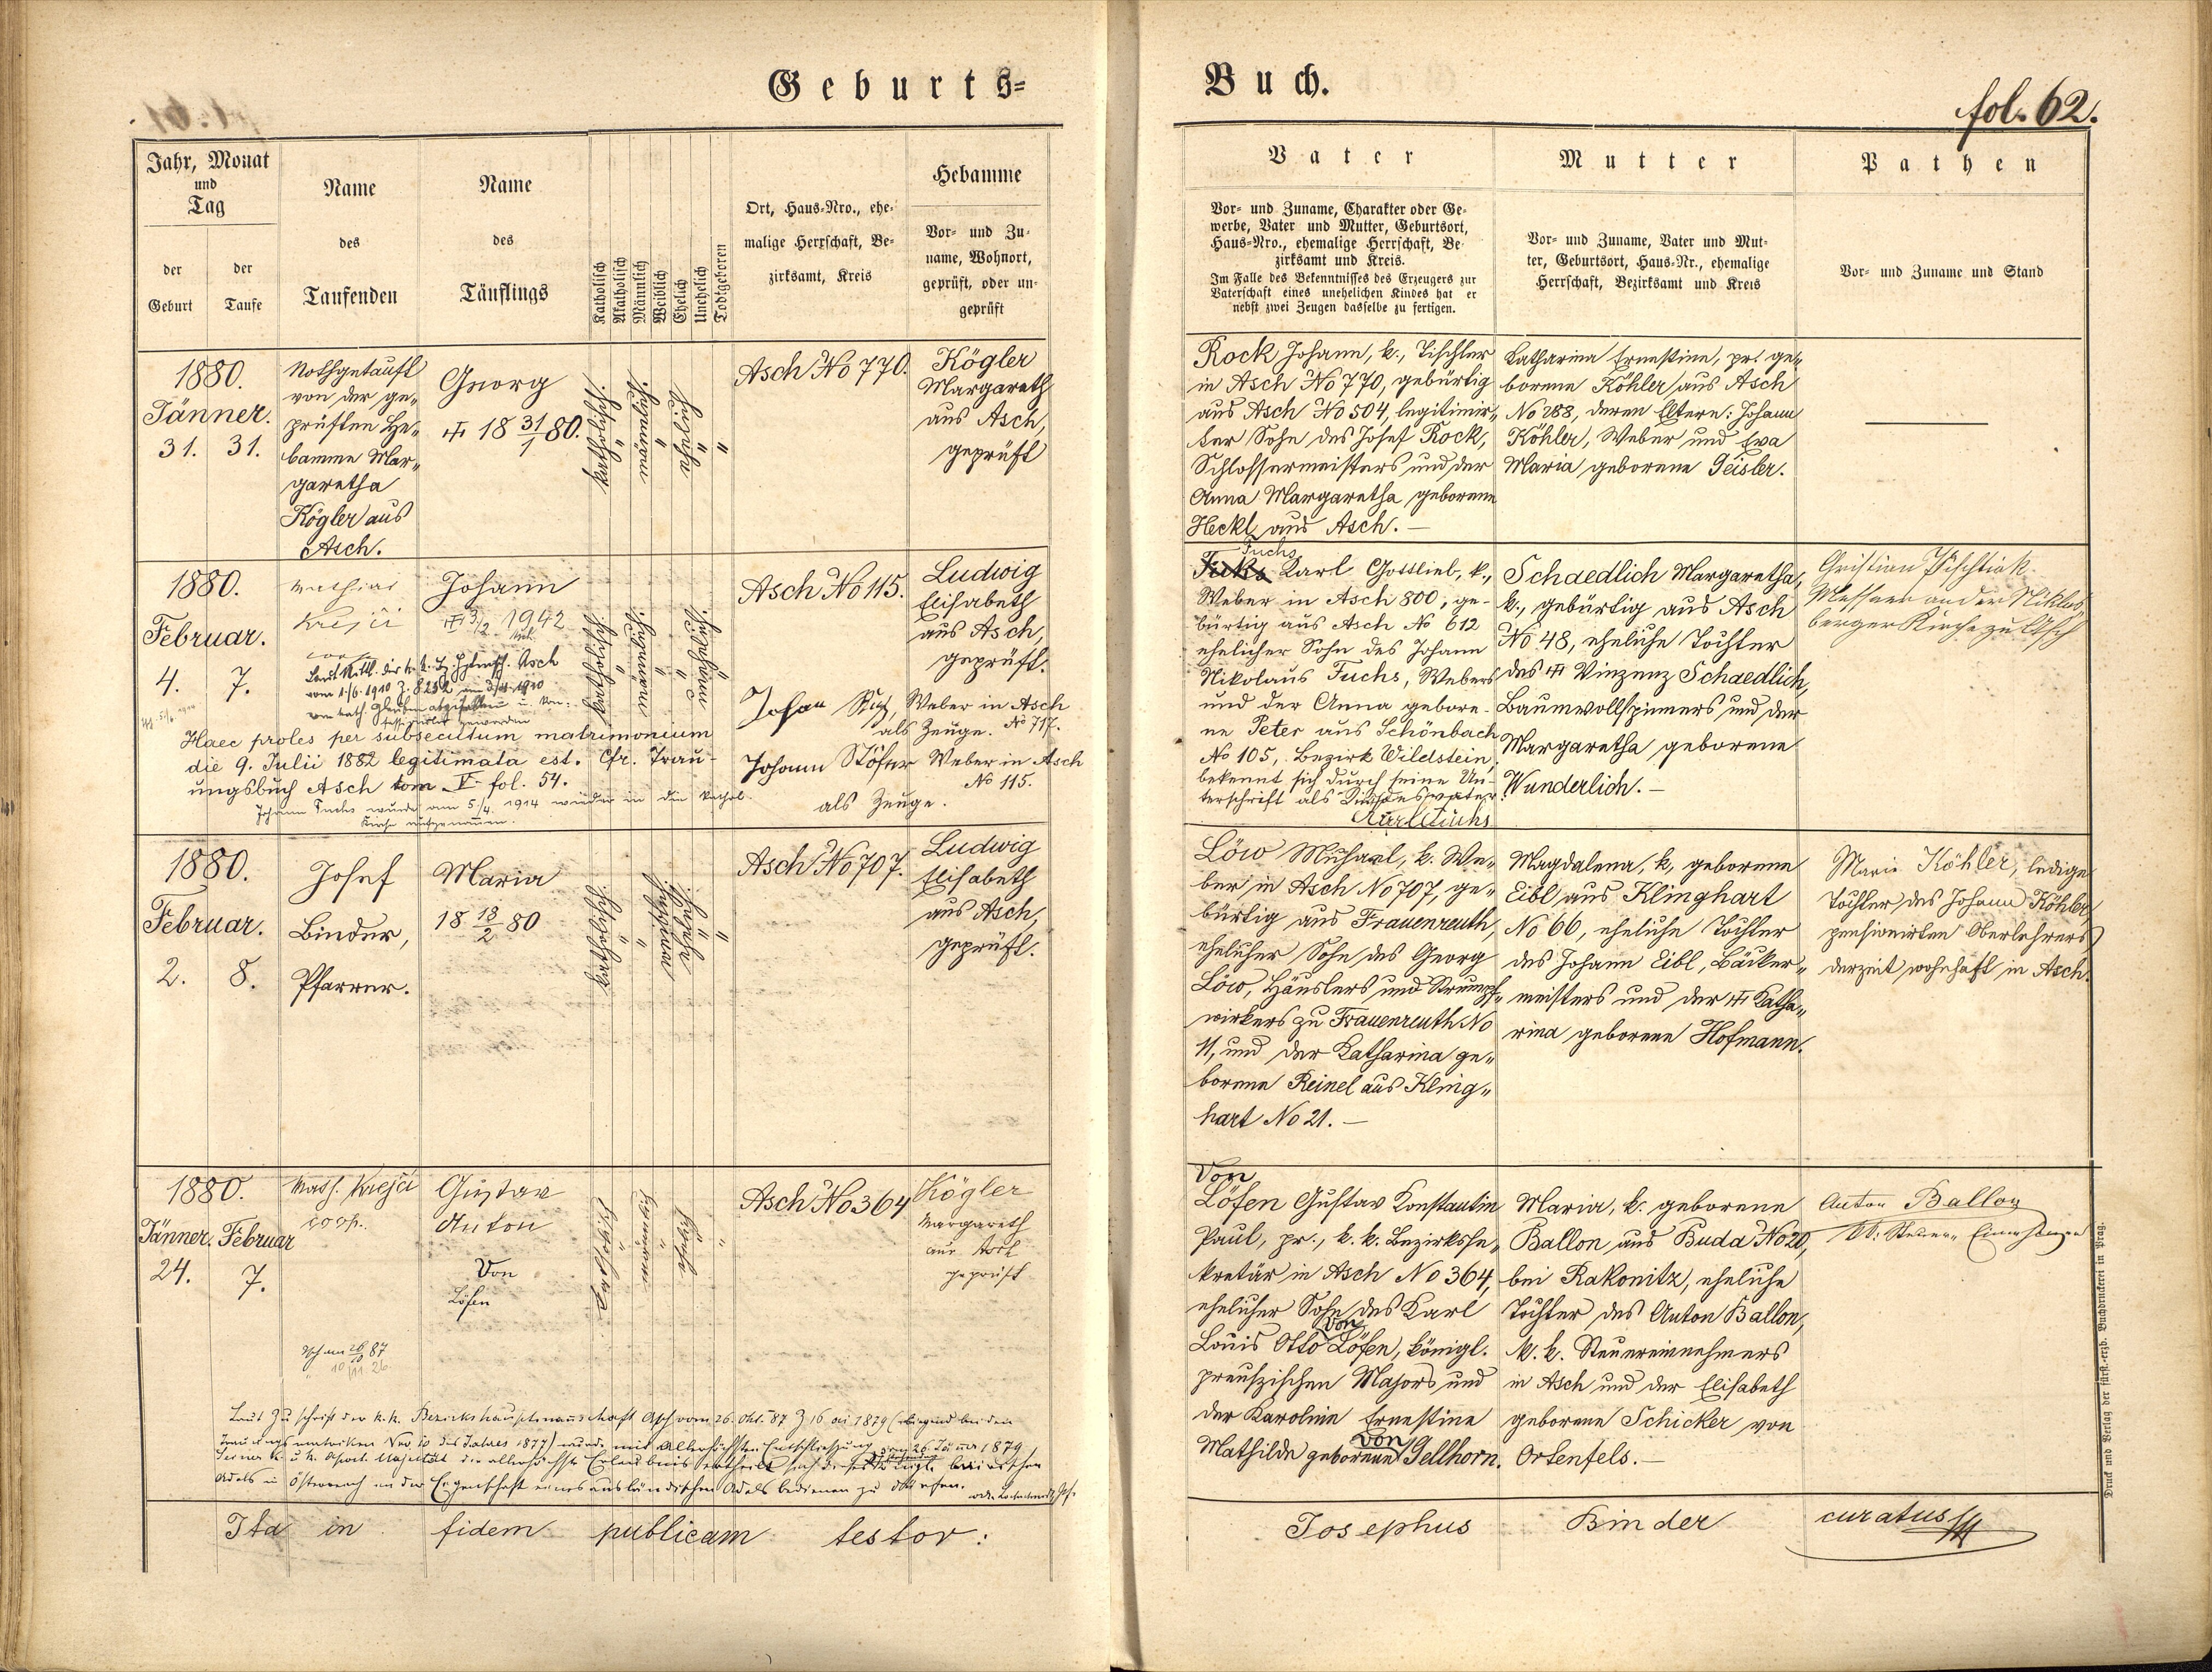 Geburts=
Buch.
fol. 62.
Jahr, Monat
und
Tag
der
Geburt
der
Taufe
Name
des
Taufenden
Name
des
Täuflings
Katholisch
Akatholisch
Männlich
Weiblich
Ehelich
Unehelich
Todtgeboren
Ort, Haus-Nro., ehe-
malige Herrschaft, Be-
zirksamt, Kreis
Hebamme
Vor- und Zu-
name, Wohnort,
geprüft, oder un-
geprüft
Vater
Vor- und Zuname, Charakter oder Ge-
werbe, Vater und Mutter, Geburtsort,
Haus-Nro., ehemalige Herrschaft, Be-
zirksamt und Kreis.
Im Falle des Bekenntnisses des Erzeugers zur
Vaterschaft eines unehelichen Kindes hat er
nebst zwei Zeugen dasselbe zu fertigen.
Mutter
Vor- und Zuname, Vater und Mut-
ter, Geburtsort, Haus-Nr., ehemalige
Herrschaft, Bezirksamt und Kreis
Pathen
Vor- und Zuname und Stand
1880.
Jänner.
31. 31.
Nothgetauft
von der ge„
prüften He„
bamme Mar„
garetha
Kögler aus
Asch.
Georg
18 31/1 80.
Asch No 770.
Kögler
Margareth
aus Asch,
geprüft
Rock Johann, k., Tischler
in Asch No 770, gebürtig
aus Asch No 504, legitimir„
ter Sohn des Josef Rock,
Schlossermeisters und der
Anna Margaretha geborene
Heckl aus Asch. —
Katharina Ernestine, pr. ge„
borene Köhler aus Asch
No 288, deren Eltern: Johann
Köhler, Weber und Eva
Maria geborene Geisler.
1880.
Februar.
4. 7.
Mathias
Krejči
Johann
3/2. 1942
Laut Mittl. der k. k. Bz. Hptmsch. Asch
vom 1./6. 1910 Z. 8252
Haec proles per subsecutum matrimonium
die 9. Julii 1882 legitimata est. Cfr. Trau-
ungsbuch Asch tom V fol. 54.
Johann Fuchs wurde am 5/4. 1914 wieder in die kathol.
Kirche aufgenommen.
Asch No 115.
Ludwig
Elisabeth
aus Asch,
geprüft.
Weber in Asch
als Zeuge. No 717.
Johann Stöfer Weber in Asch
No 115.
als Zeuge.
Fuchs
Karl Gottlieb, k.,
Weber in Asch 800, ge-
bürtig aus Asch No 612
ehelicher Sohn des Johann
Nikolaus Fuchs, Webers
und der Anna gebore-
ne Peter aus Schönbach
No 105, Bezirk Wildstein,
bekennt sich durch seine Un-
terschrift als Kindesvater.
Karl Fuchs
Schaedlich Margaretha,
k., gebürtig aus Asch
No 48, eheliche Tochter
des Vinzenz Schaedlich,
Baumwollspinners und der
Margaretha geborene
Wunderlich. —
Christian
Messner an der Niklas„
berger Kirche zu Asch
1880.
Februar.
2. 8.
Josef
Binder,
Pfarrer.
Maria
18 18/2 80
Asch No 707.
Ludwig
Elisabeth
aus Asch,
geprüft.
Löw Michael, k. We„
ber in Asch No 707, ge„
bürtig aus Frauenreuth,
ehelicher Sohn des Georg
Löw, Häuslers und Strumpf„
wirkers zu Frauenreuth No
11, und der Katharina ge„
borene Reinel aus Kling„
hart No 21. —
Magdalena, k, geborene
Eibl aus Klinghart
No 66, eheliche Tochter
des Johann Eibl, Bäcker„
meisters und der Katha„
rina geborene Hofmann.
Marie Köhler, ledige
Tochter des Johann Köhler
pensionirten Oberlehrers
derzeit wohnhaft in Asch.
1880.
Jänner. Februar
24. 7.
Math. Krejči
coop.
Gustav
Anton
Von
Löfen
Asch No 364
Kögler
Margareth
aus Asch
geprüft
Von
Löfen Gustav Konstantin
Paul, pr., k. k. Bezirksse„
kretär in Asch No 364,
ehelicher Sohn des Karl
Louis Otto von Löfen, königl.
preuszischen Majors und
der Karoline Ernestine
Mathilde geborene von Gellhorn.
Maria, k. geborene
Ballon aus Buda No 20,
bei Rakonitz, eheliche
Tochter des Anton Ballon,
k. k. Steuereinnehmers
in Asch und der Elisabeth
geborene Schicker von
Ortenfels. —
Anton Ballon
k. k. Steuer„ Einnehmer
Laut Zuschrift der k. k. Bezirkshauptmannschaft Asch vom 26. Okt. 87
des Jahres 1877) wurde mit Allerhöchster Entschließung vom 26. Jänner 1879
Adels in Österreich in der Eigenschaft eines ausländischen Adels bedienen zu dürfen.
Ita in fidem publicam testor:
Josephus Binder curatus
Druck und Verlag der fürst.-erzb. Buchdruckerei in Prag.